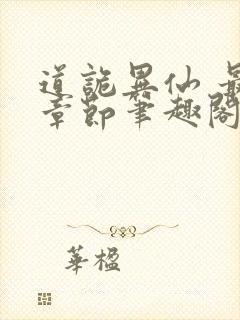 道詭異仙 最
章節筆趣閣
華楹